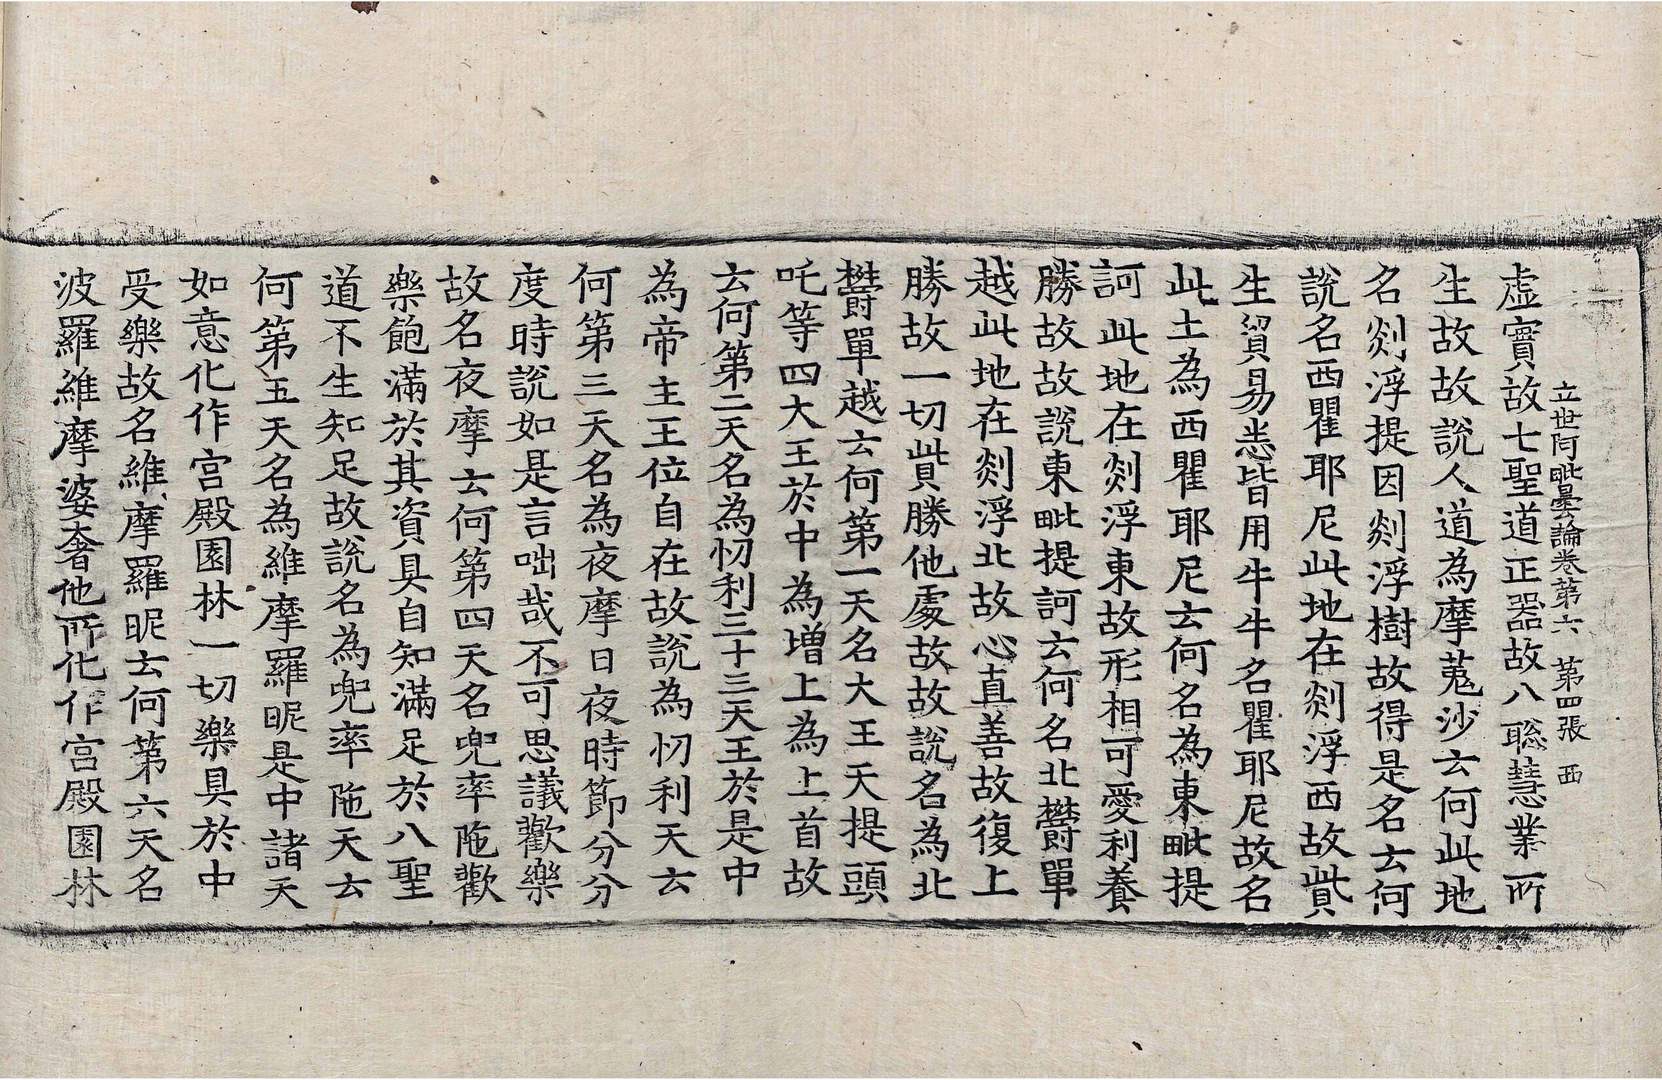 立世阿毗曇論卷第六 第四張 西
虛實故七聖道正器故八聡慧業所
生故故說人道為摩㝹沙云何此地
名剡浮提因剡浮樹故得是名云何
說名西瞿耶尼此地在剡浮西故貲
生貿易悉皆用牛牛名瞿耶尼故名
此土為西瞿耶尼云何名為東毗提
訶此地在剡浮東故形相可愛利養
勝故故說東毗提訶云何名北欝單
越此地在剡浮北故心真善故復上
勝故一切貲勝他處故故說名為北
欝單越云何第一天名大王天提頭
吒等四大王於中為增上為上首故
云何第二天名為忉利三十三天王於是中
為帝主王位自在故說為忉利天云
何第三天名為夜摩日夜時節分分
度時說如是言咄哉不可思議歡樂
故名夜摩云何第四天名兜率陁歡
樂飽滿於其資具自知滿足於八聖
道不生知足故說名為兜率陁天云
何第五天名為維摩羅昵是中諸天
如意化作宮殿園林一切樂具於中
受樂故名維摩羅昵云何第六天名
波羅維摩婆奢他所化作宮殿園林